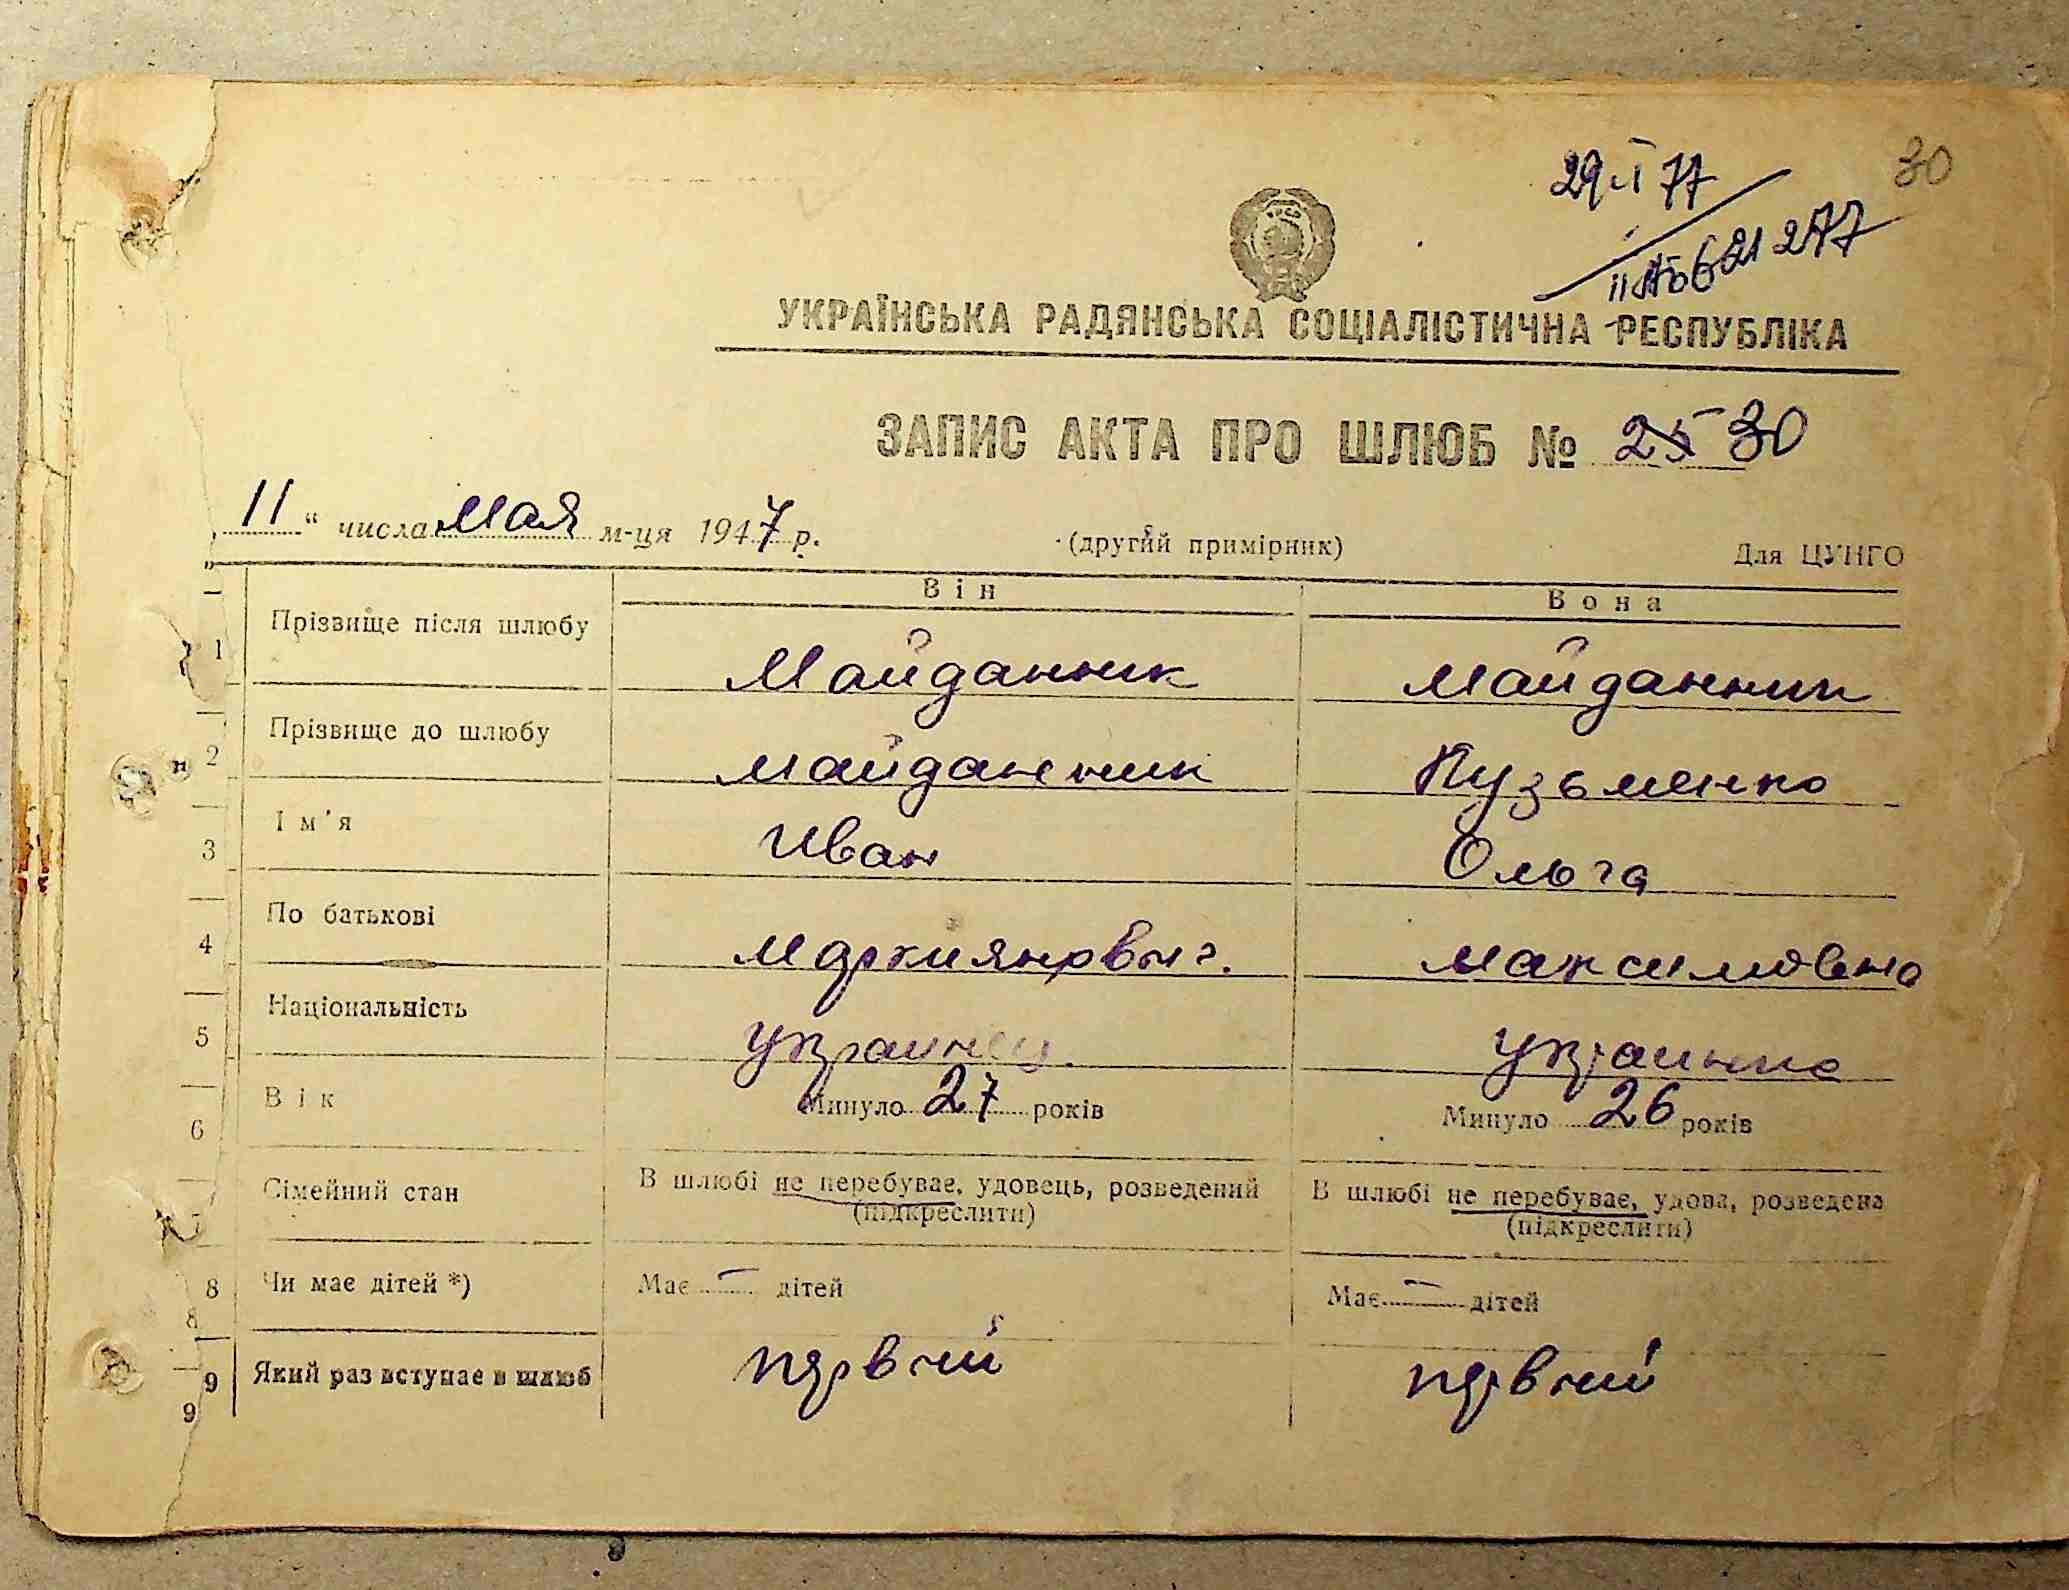 30
29.I 77
II 621277
УКРАЇНСЬКА РАДЯНСЬКА СОЦІАЛІСТИЧНА РЕСПУБЛІКА
ЗАПИС АКТА ПРО ШЛЮБ № 25 30
„ 11 “ числа мая м-ця 1947 р.
(другий примірник)
Для ЦУНГО
Він
Вона
1 Прізвище після шлюбу Майданник Майданник
2 Прізвище до шлюбу Майданник Кузьменко
3 Ім'я Иван Ольга
4 По батькові Маркиянович. Максимовна
5 Національність украинец. украинка
6 Вік Минуло 27 років Минуло 26 років
7 Сімейний стан В шлюбі не перебуває, удовець, розведений (підкреслити) В шлюбі не перебуває, удова, розведена (підкреслити)
8 Чи має дітей *) Має — дітей Має — дітей
8
9 Який раз вступає в шлюб первый первый
9